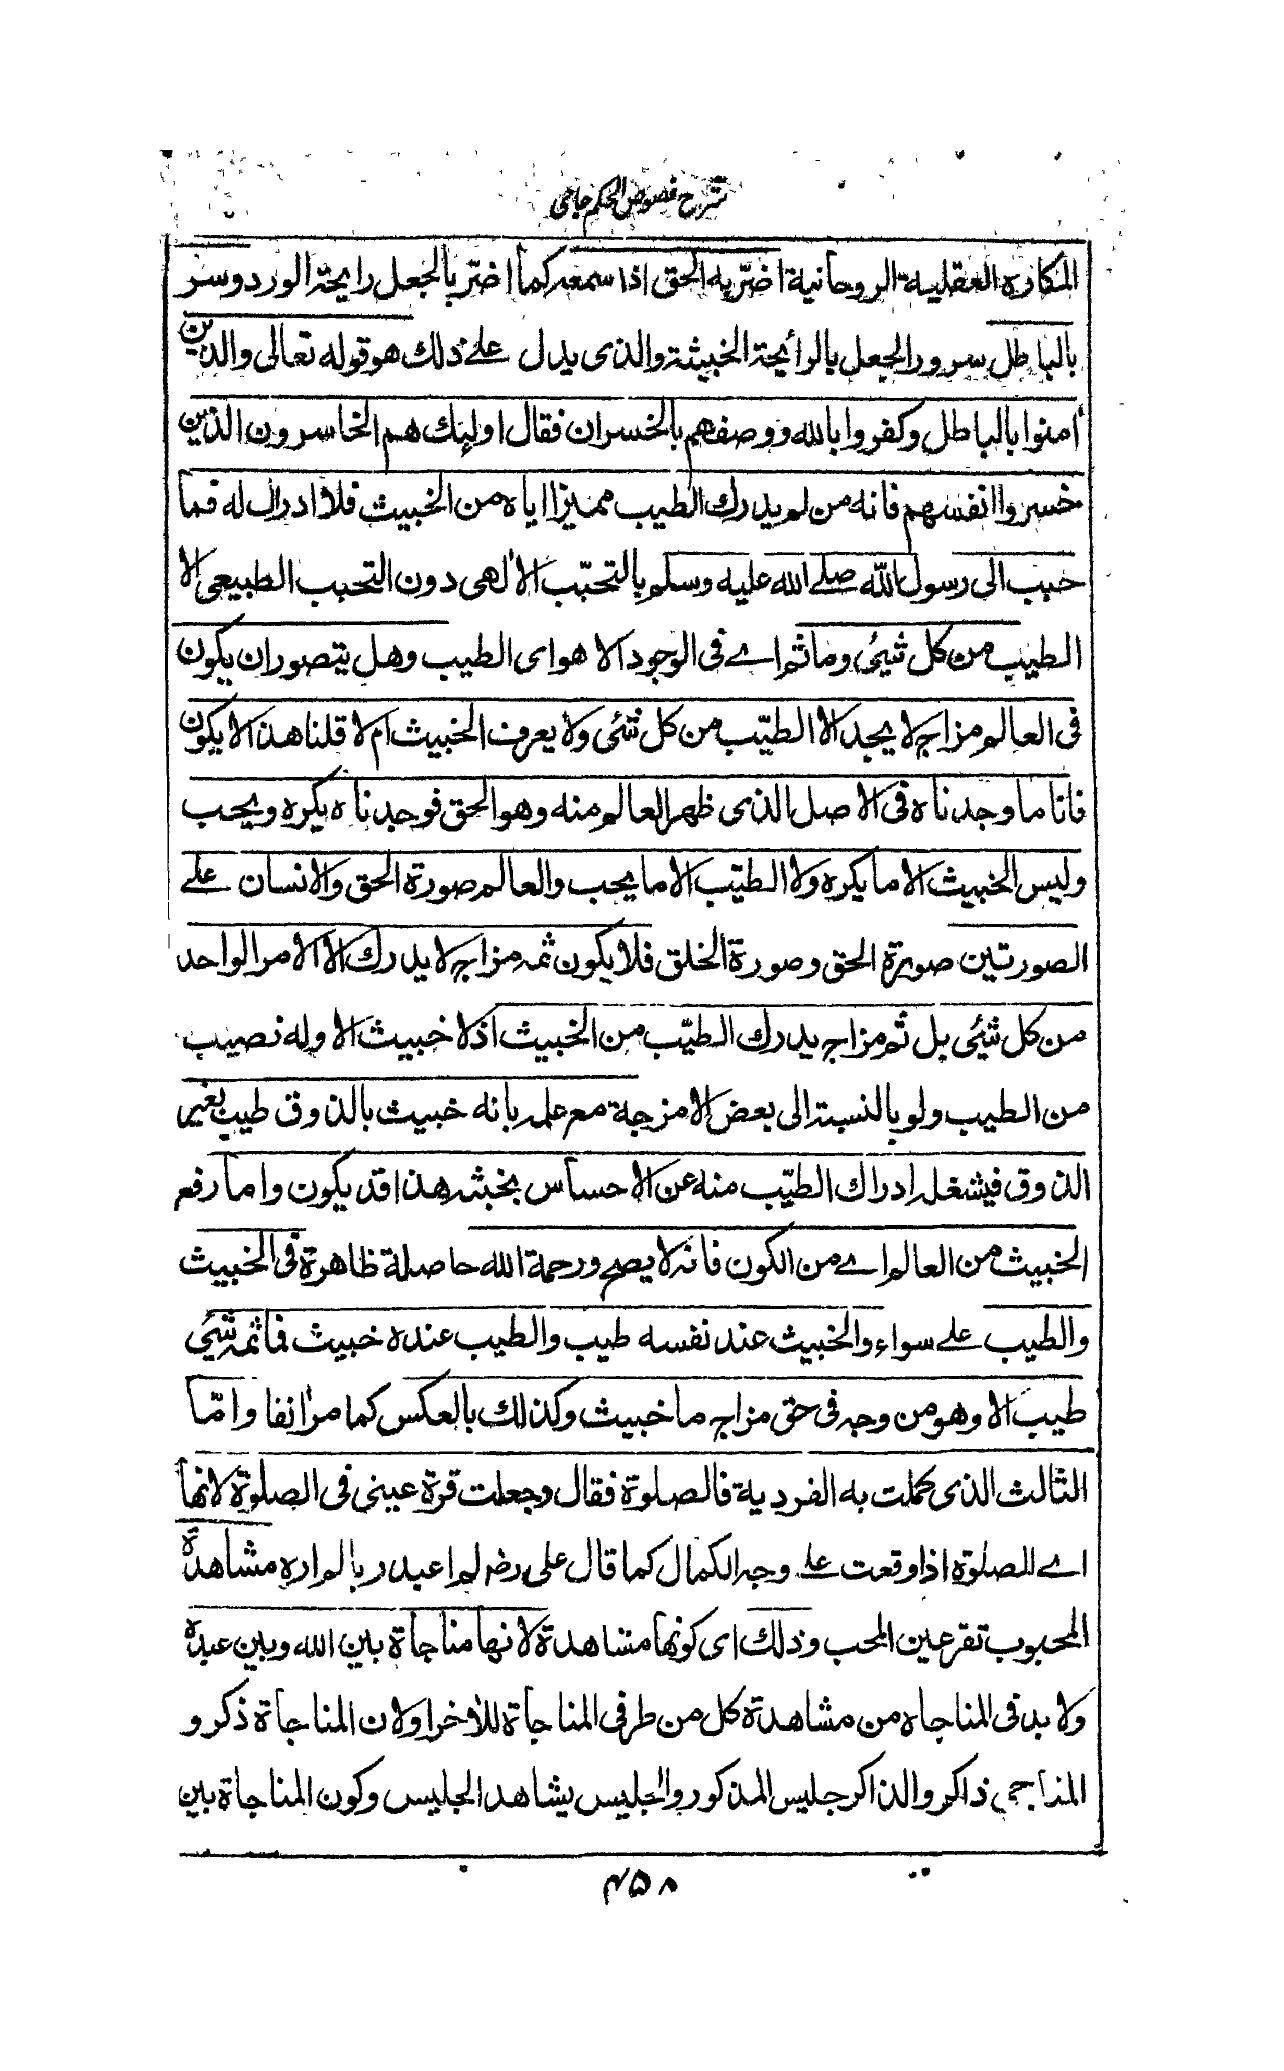 شرح فصوص الحكم جامی
المكاره العقلية الروحانية اضرّ به الحق اذا سمعه كما اضرّ بالجعل رايحة الورد وسر
بالباطل سرور الجعل بالرائحة الخبيثة والذى يدل علے ذلك هو قوله تعالى والذين
اٰمنوا بالباطل وكفروا بالله ووصفهم بالخسران فقال اولئك هم الخاسرون الذين
خسروا انفسهم فانه من لم يدرك الطيب مميزا اياه من الخبيث فلا ادراك له فما
حبب الى رسول اللّه صلے الله عليه وسلم بالتحبّب الالٰهى دون التحبب الطبيعى الا
الطيب من كل شيئى وما ثم اے فى الوجود الا هو اى الطيب وهل يتصور ان يكون
فى العالم مزاج لا يجد الا الطيّب من كل شئى ولا يعرف الخبيث ام لا قلنا هذا لا يكون
فانا ما وجدناه فى الاصل الذى ظهر العالم منه وهو الحق فوجدناه يكره ويحب
وليس الخبيث الا ما يكره ولا الطيّب الا ما يحب والعالم صورة الحق والانسان علے
الصورتين صورة الحق وصورة الخلق فلا يكون ثمه مزاج لا يدرك الا الامر الواحد
من كل شئى بل ثم مزاج يدرك الطيّب من الخبيث اذ لا خبيث الا وله نصيب
من الطيب ولو بالنسبة الى بعض الامزجة مع علمه بانه خبيث بالذوق طيب بغير
الذوق فيشغله ادراك الطيّب منه عن الاحساس بخبثه هذا قد يكون واما رفع
الخبيث من العالم اے من الكون فانه لا يصح ورحمة الله حاصلة ظاهرة فى الخبيث
والطيب علے سواء والخبيث عند نفسه طيب والطيب عنده خبيث فما ثمه شئي
طيب الا وهو من وجه فى حق مزاج ما خبيث وكذلك بالعكس كما مر اٰنفا وامّا
الثالث الذى كملت به الفردية فالصلوة فقال وجعلت قرة عينى فى الصلوة لانها
اے الصلوة اذا وقعت علے وجه الكمال كما قال على رضه لم اعبد ربا لم اره مشاهدة
المحبوب تقر عين المحب وذلك اى كونها مشاهدة لانها مناجاة بين الله وبين عبده
ولا بد فى المناجاه من مشاهدة كل من طرفى المناجاة للاٰخر اولان المناجاة ذكر و
المناجى ذاكر والذاكر جليس المذكور والجليس يشاهد الجليس وكون المناجاة بين
۴۵۸